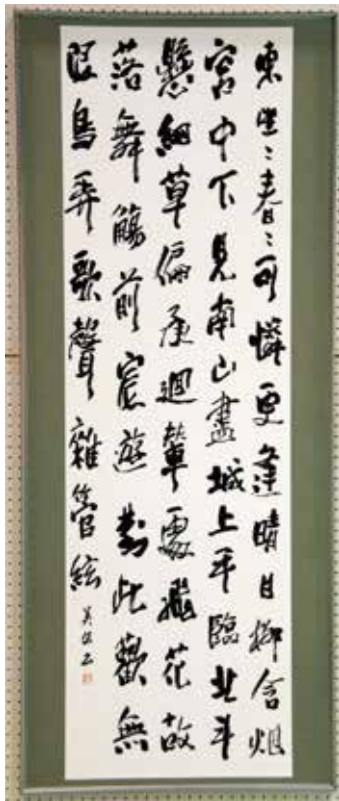 東望〻春〻可憐更逢晴日柳含烟
宮中下見南山盡城上平臨北斗
懸細草偏承迴輦處飛花故
落舞觴前宸遊對此歡無
限鳥弄歌聲雜管絃